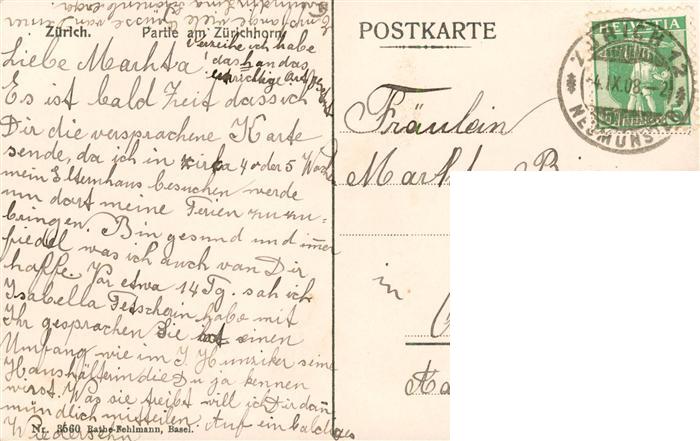 Zürich. Partie am Zürichhorn
Verzeihe ich habe
das h an das
unrichtige Ort gesetzt
Liebe Machta
Es ist bald Zeit dass ich
Dir die versprochene Karte
sende, da ich in zirka 4 oder 5 Woch
mein Elternhaus besuchen werde
um dort meine Ferien zuzu-
bringen. Bin gesund und immer
fiedel was ich auch van Dir
hoffe. Vor etwa 14 Tg. sah ich
Isabella habe mit
Ihr gesprochen Sie hat einen
Umfang wie im J. Hunriker seine
Haushälterin die Du ja kennen
wirst. Was sie treibt will ich Dir dann
mündlich mitteilen. Auf ein baldiges
Wiedersehn
Nr. 3560 Rathe-Fehlmann, Basel.
POSTKARTE
HELVETIA
ZÜRICH 12
-4.IX.08.-2
NEUMÜNS
Fräulein
in